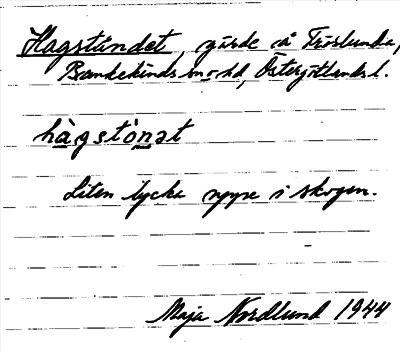 Hagståndet, gärde å Fröslunda,
Bankekinds sn o hd, Östergötlands l.
hàgstònət
Liten lycka uppe i skogen.
Maja Nordlund 1944